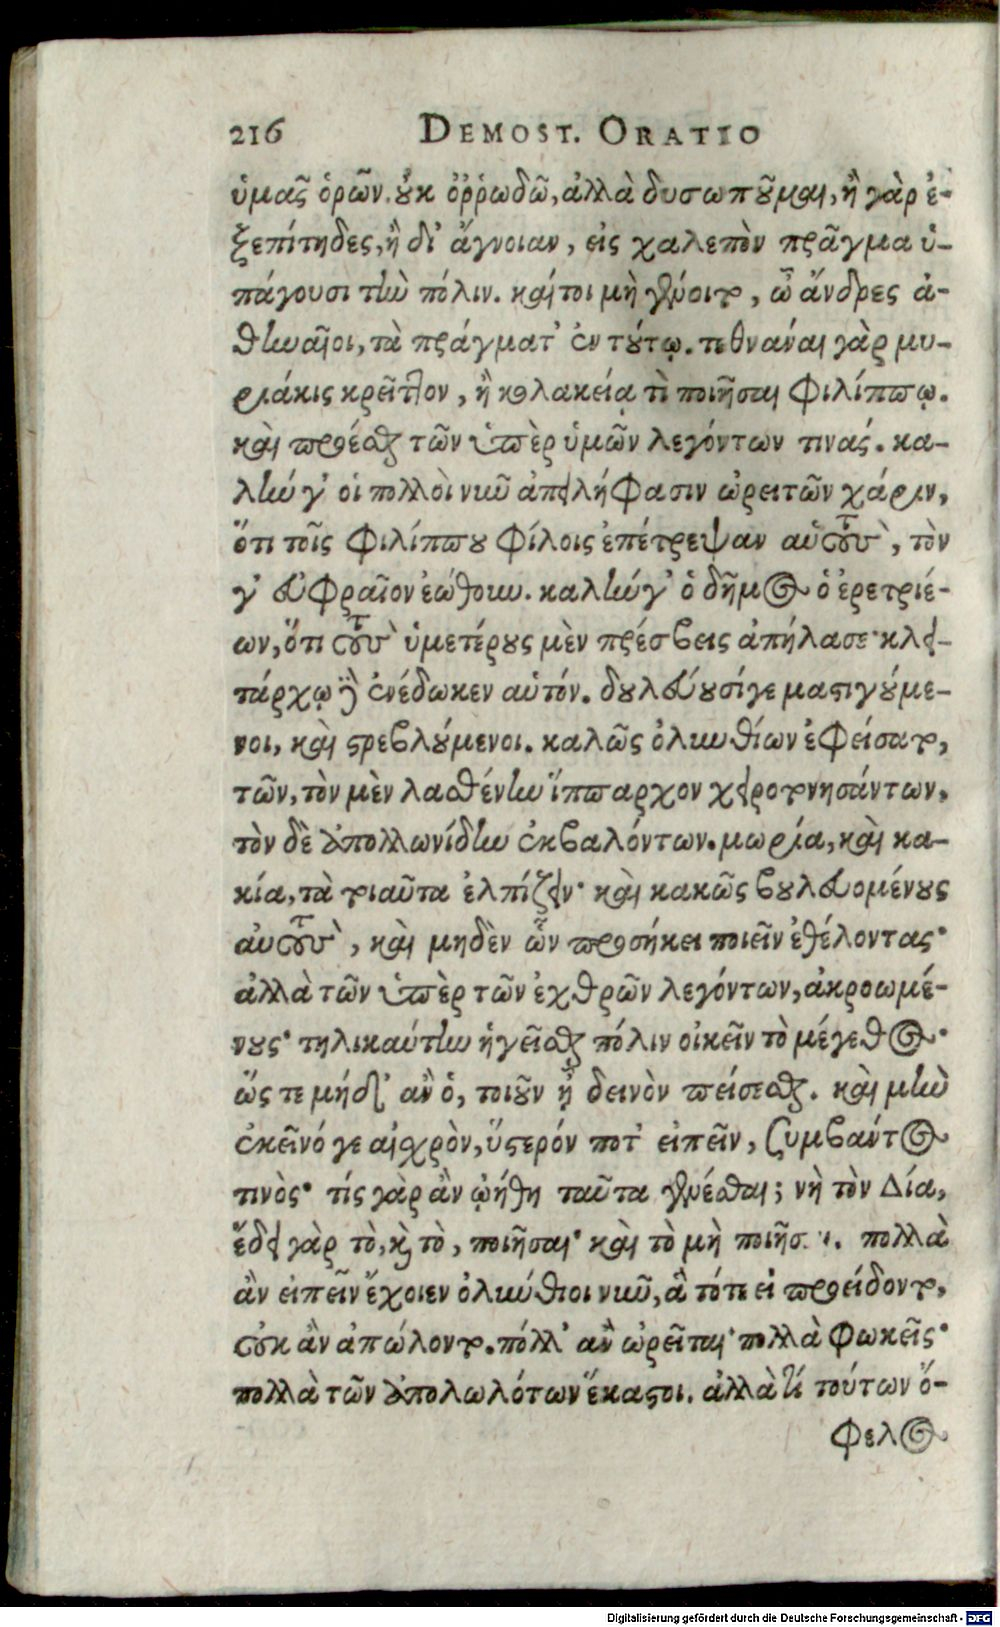 216 DEMOST. ORATIO
ὑμᾶς ὁρῶν. οὐκ ὀῤῥωδῶ, ἀλλὰ δυσωποῦμαι, ἢ γὰρ ἐ-
ξεπίτηδες, ἢ δι' ἄγνοιαν, εἰς χαλεπὸν πρᾶγμα ὑ-
πάγουσι τὴν πόλιν. καίτοι μὴ γένοιτο, ὦ ἄνδρες ἀ-
θηναῖοι, τὰ πράγματ' ἐν τούτῳ. τεθνάναι γὰρ μυ-
ριάκις κρεῖττον, ἢ κολακείᾳ τὶ ποιῆσαι Φιλίππῳ.
καὶ προέσθαι τῶν ὑπὲρ ὑμῶν λεγόντων τινάς. κα-
λήν γ' οἱ πολλοὶ νῦν ἀπειλήφασιν ὠρειτῶν χάριν,
ὅτι τοῖς Φιλίππου φίλοις ἐπέτρεψαν αὑτοὺς, τὸν
γ' εὐφραῖον ἐώθουν. καλήν γ' ὁ δῆμος ὁ ἐρετριέ-
ων, ὅτι τοὺς ὑμετέρους μὲν πρέσβεις ἀπήλασε· κλει-
τάρχῳ δὲ ἐνέδωκεν αὑτόν. δουλεύουσί γε μαστιγούμε-
νοι, καὶ στρεβλούμενοι. καλῶς ὀλυνθίων ἐφείσατο,
τῶν, τὸν μὲν λασθένην ἵππαρχον χειροτονησάντων,
τὸν δὲ ἀπολλωνίδην ἐκβαλόντων. μωρία, καὶ κα-
κία, τὰ τοιαῦτα ἐλπίζειν· καὶ κακῶς βουλευομένους
αὑτοὺς, καὶ μηδὲν ὧν προσήκει ποιεῖν ἐθέλοντας·
ἀλλὰ τῶν ὑπὲρ τῶν ἐχθρῶν λεγόντων, ἀκροωμέ-
νους· τηλικαύτην ἡγεῖσθαι πόλιν οἰκεῖν τὸ μέγεθος·
ὥς τε μήδ' ἂν ὁ, τιοῦν ᾖ δεινὸν πείσεσθαι. καὶ μὴν
ἐκεῖνό γε αἰσχρὸν, ὕστερόν ποτ' εἰπεῖν, συμβάντος
τινὸς· τίς γὰρ ἂν ᾠήθη ταῦτα γενέσθαι; νὴ τὸν Δία,
ἔδει γὰρ τὸ, καὶ τὸ, ποιῆσαι· καὶ τὸ μὴ ποιῆσαι. πολλὰ
ἂν εἰπεῖν ἔχοιεν ὀλύνθιοι νῦν, ἃ τότε εἰ προείδοντο,
οὐκ ἂν ἀπώλοντο. πόλλ' ἂν ὠρεῖται· πολλὰ φωκεῖς·
πολλὰ τῶν ἀπολωλότων ἕκαστοι. ἀλλὰ τί τούτων ὄ-
φελος
Digitalisierung gefördert durch die Deutsche Forschungsgemeinschaft - DFG